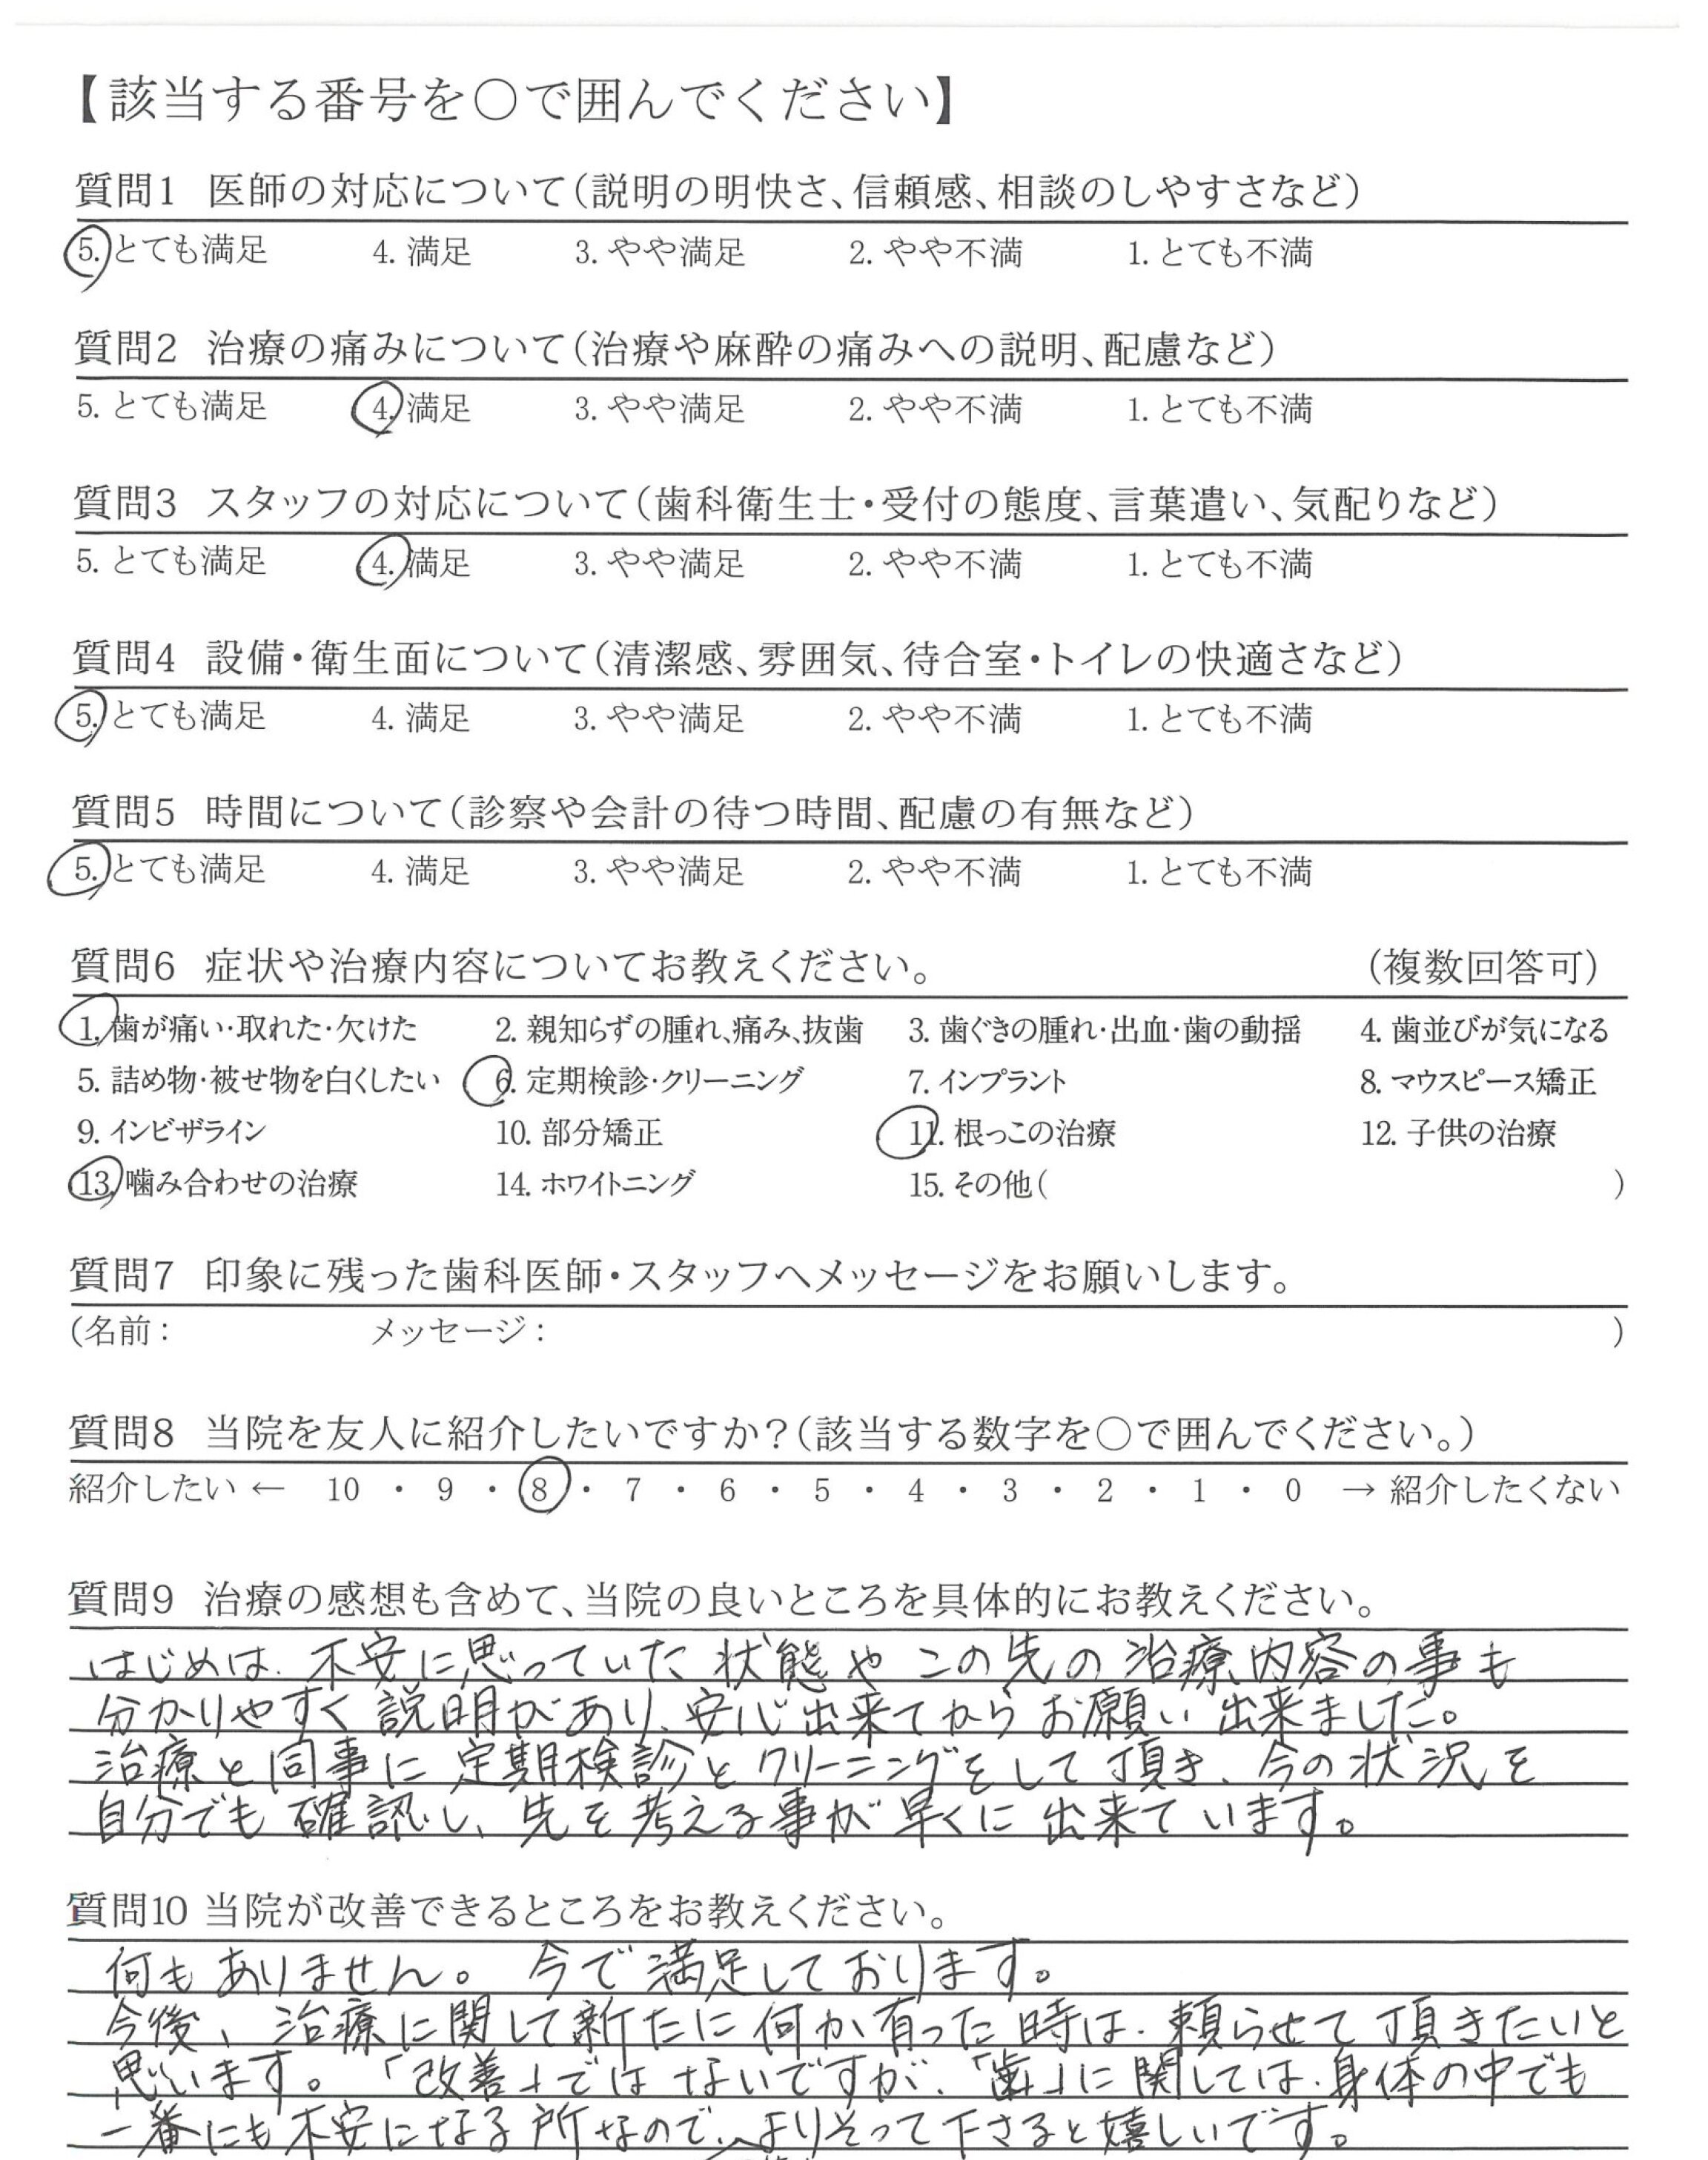 【該当する番号を○で囲んでください】
質問1 医師の対応について(説明の明快さ、信頼感、相談のしやすさなど)
5. とても満足 4. 満足 3. やや満足 2. やや不満 1. とても不満
質問2 治療の痛みについて(治療や麻酔の痛みへの説明、配慮など)
5. とても満足 4. 満足 3. やや満足 2. やや不満 1. とても不満
質問3 スタッフの対応について(歯科衛生士・受付の態度、言葉遣い、気配りなど)
5. とても満足 4. 満足 3. やや満足 2. やや不満 1. とても不満
質問4 設備・衛生面について(清潔感、雰囲気、待合室・トイレの快適さなど)
5. とても満足 4. 満足 3. やや満足 2. やや不満 1. とても不満
質問5 時間について(診察や会計の待つ時間、配慮の有無など)
5. とても満足 4. 満足 3. やや満足 2. やや不満 1. とても不満
質問6 症状や治療内容についてお教えください。 (複数回答可)
1. 歯が痛い・取れた・欠けた 2. 親知らずの腫れ、痛み、抜歯 3. 歯ぐきの腫れ・出血・歯の動揺 4. 歯並びが気になる
5. 詰め物・被せ物を白くしたい 6. 定期検診・クリーニング 7. インプラント 8. マウスピース矯正
9. インビザライン 10. 部分矯正 11. 根っこの治療 12. 子供の治療
13. 噛み合わせの治療 14. ホワイトニング 15. その他( )
質問7 印象に残った歯科医師・スタッフへメッセージをお願いします。
(名前: メッセージ: )
質問8 当院を友人に紹介したいですか?(該当する数字を○で囲んでください。)
紹介したい ← 10 ・ 9 ・ 8 ・ 7 ・ 6 ・ 5 ・ 4 ・ 3 ・ 2 ・ 1 ・ 0 → 紹介したくない
質問9 治療の感想も含めて、当院の良いところを具体的にお教えください。
はじめは、不安に思っていた状態やこの先の治療内容の事も
分かりやすく説明があり、安心出来てからお願い出来ました。
治療と同事に定期検診とクリーニングをして頂き、今の状況を
自分でも確認し、先を考える事が早くに出来ています。
質問10 当院が改善できるところをお教えください。
何もありません。今で満足しております。
今後、治療に関して新たに何か有った時は、頼らせて頂きたいと
思います。「改善」ではないですが、「歯」に関しては、身体の中でも
一番にも不安になる所なので、よりそって下さると嬉しいです。